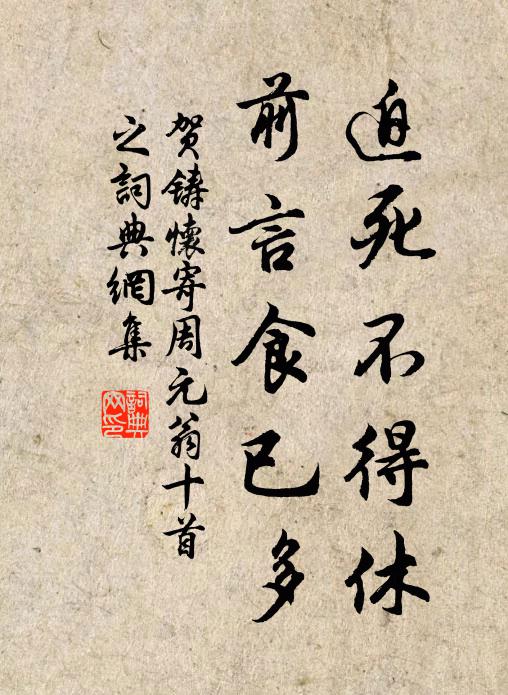 迫死不得休
前言食已多
贺铸怀寄周元翁十首
之詞典網集
詞典网印